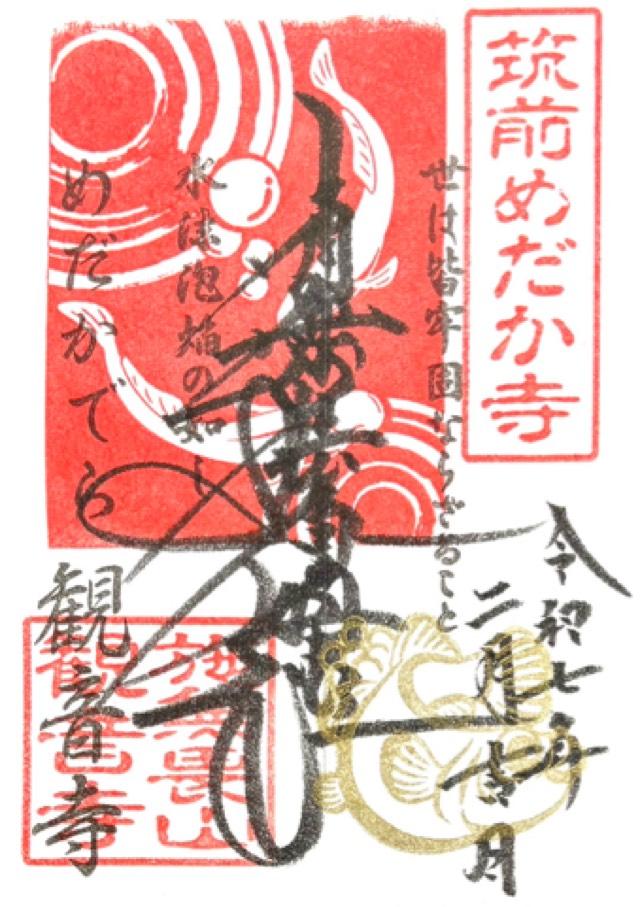 筑前めだか寺
令和七年
二月吉日
世は皆牢固ならざること
水沫泡焔の如し
めだかでら
観音寺
施無畏山
観音寺